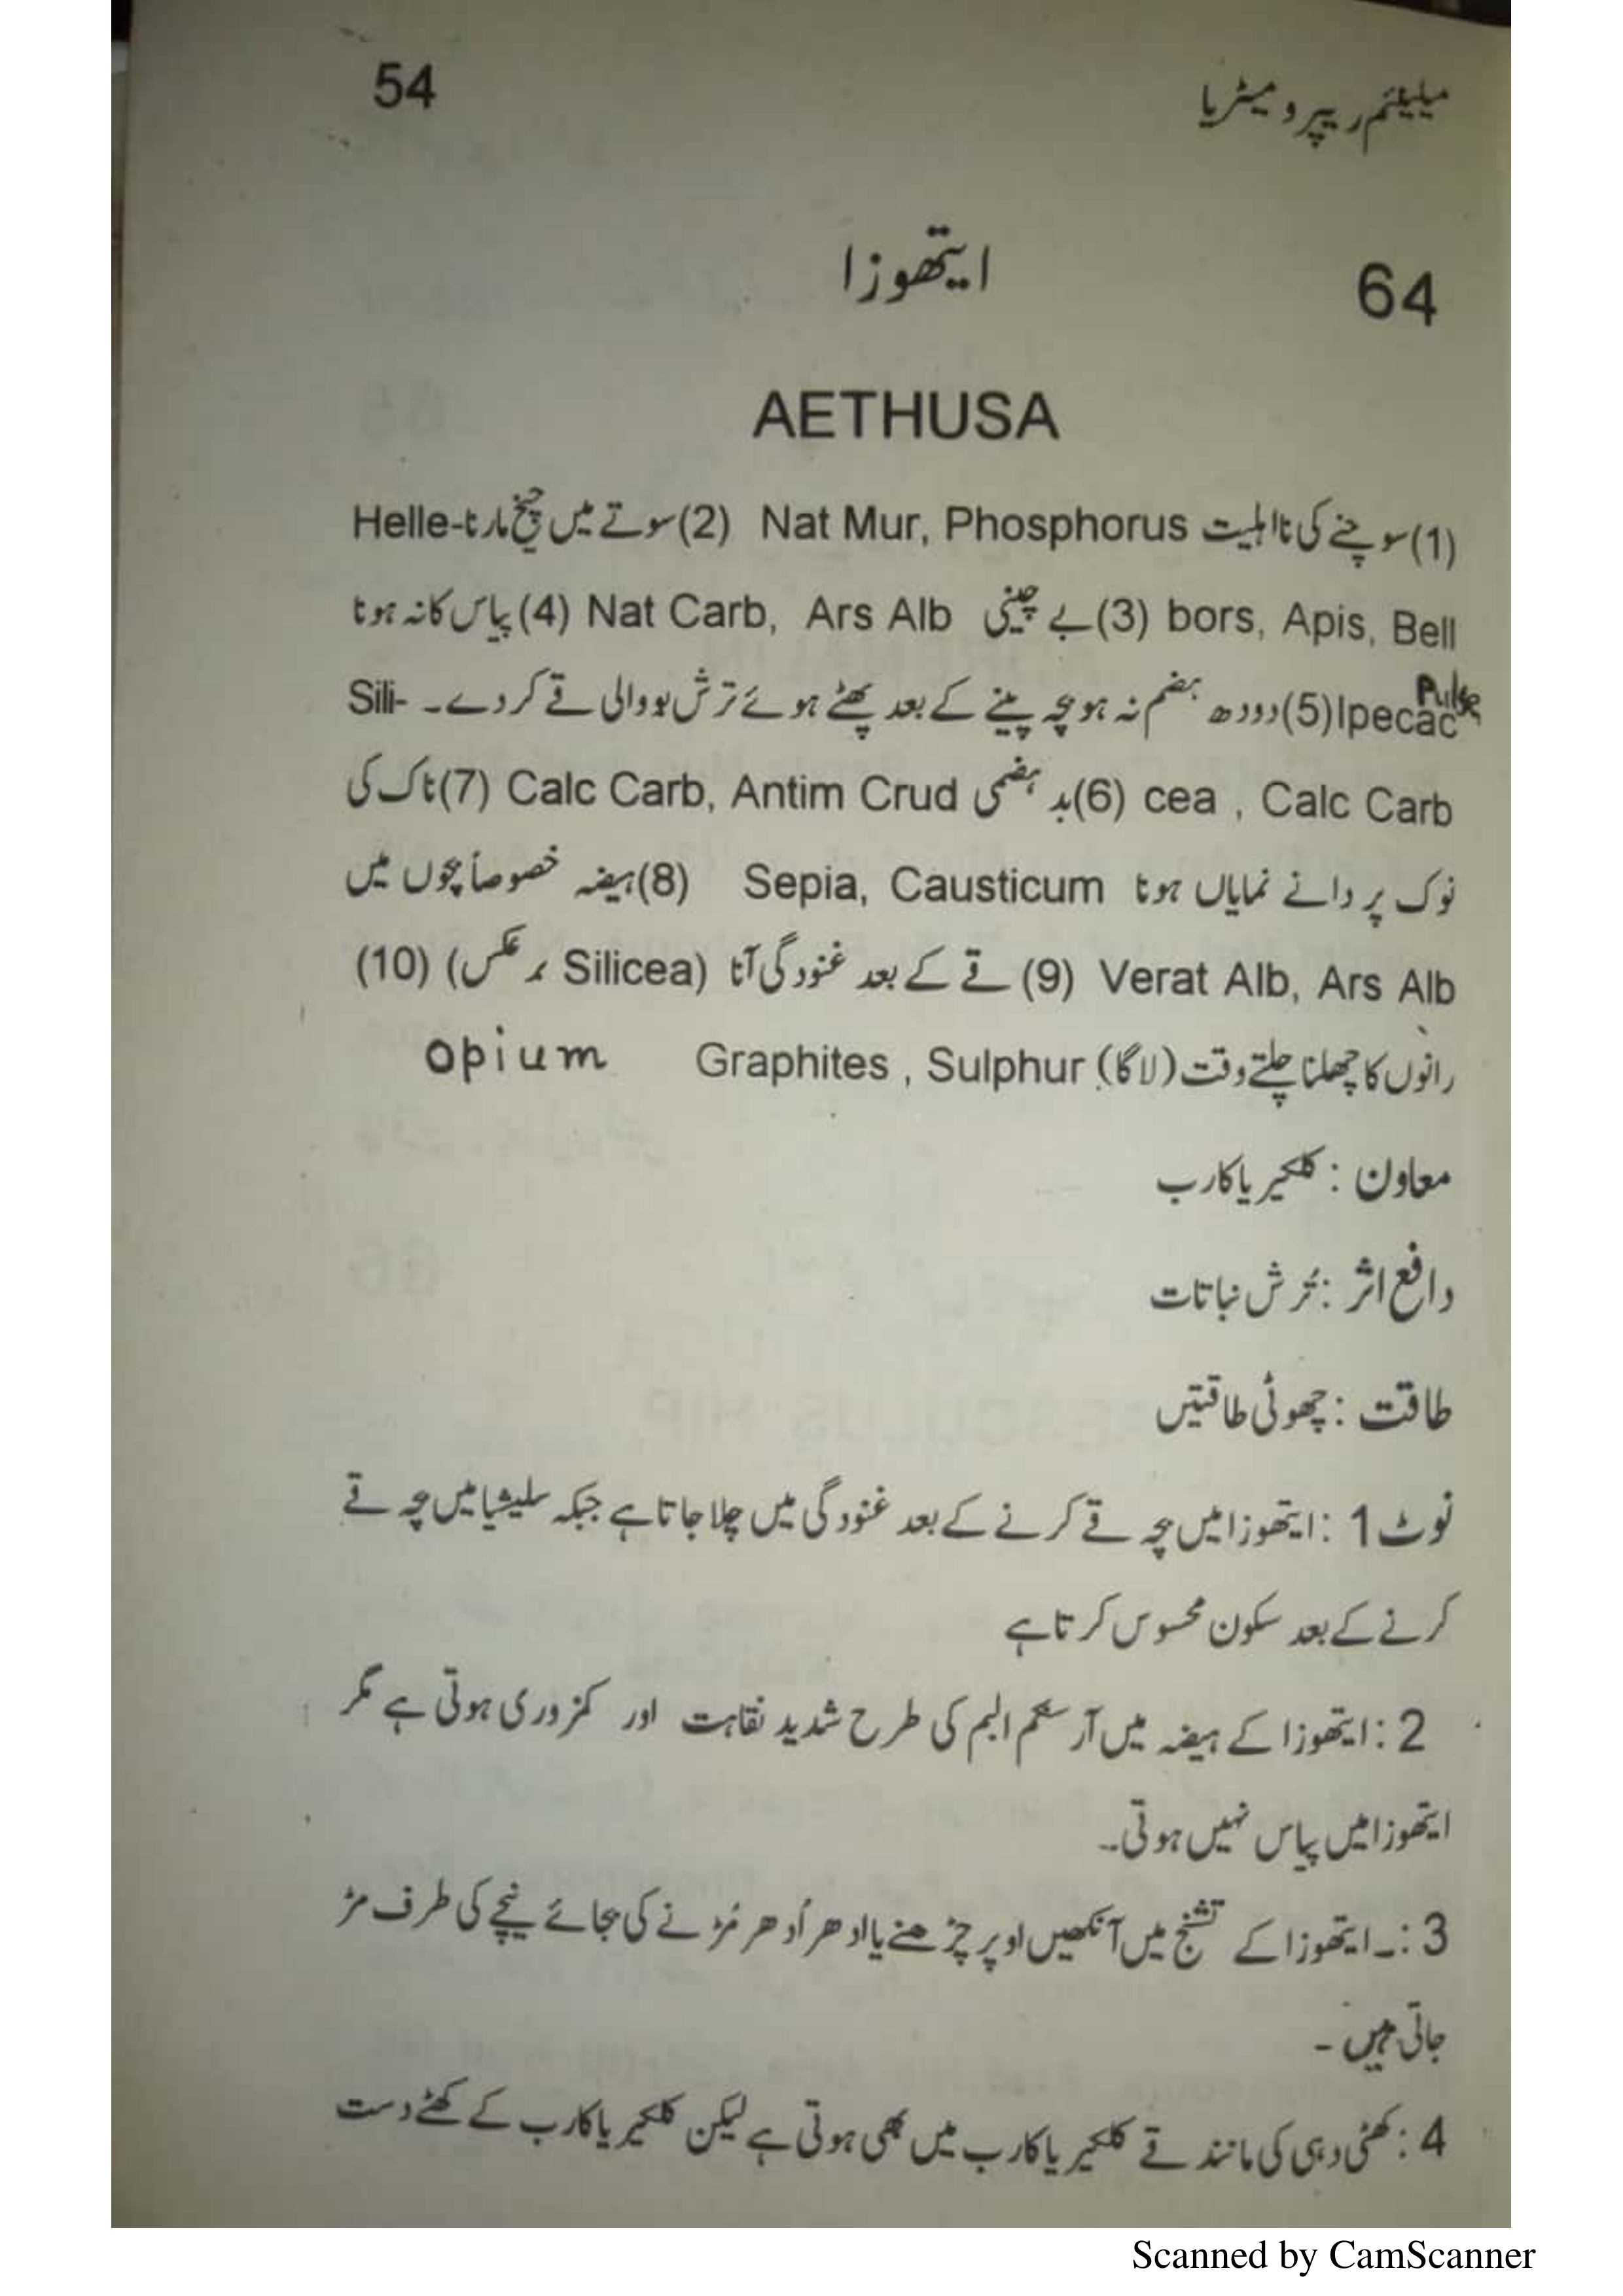 میلینئم ریپرومیٹریا 54
64 ایتھوزا
AETHUSA
(1) سوچنے کی نااہلیت Nat Mur, Phosphorus (2) سوتے میں چیخ مارنا Helle-
bors, Apis, Bell (3) بے چینی Nat Carb, Ars Alb (4) پیاس کا نہ ہونا
Pulse
Ipecac (5) دودھ ہضم نہ ہو بچہ پینے کے بعد پھٹے ہوئے ترش بو والی قے کر دے۔ Sili-
cea , Calc Carb (6) بد ہضمی Calc Carb, Antim Crud (7) ناک کی
نوک پر دانے نمایاں ہونا Sepia, Causticum (8) ہیضہ خصوصاً بچوں میں
Verat Alb, Ars Alb (9) قے کے بعد غنودگی آنا (Silicea بر عکس) (10)
رانوں کا چھلنا چلتے وقت (لاگا) Graphites , Sulphur opium
معاون : کلکیریا کارب
دافع اثر : ترش نباتات
طاقت : چھوٹی طاقتیں
نوٹ 1 : ایتھوزا میں بچہ قے کرنے کے بعد غنودگی میں چلا جاتا ہے جبکہ سلیشیا میں بچہ قے
کرنے کے بعد سکون محسوس کرتا ہے
2 : ایتھوزا کے ہیضہ میں آرسنکم البم کی طرح شدید نقاہت اور کمزوری ہوتی ہے مگر
ایتھوزا میں پیاس نہیں ہوتی۔
3 :۔ ایتھوزا کے تشنج میں آنکھیں اوپر چڑھنے یا ادھر اُدھر مُڑنے کی بجائے نیچے کی طرف مڑ
جاتی ہیں ۔
4 : کھٹی دہی کی مانند قے کلکیریا کارب میں بھی ہوتی ہے لیکن کلکیریا کارب کے کھٹے دست
Scanned by CamScanner